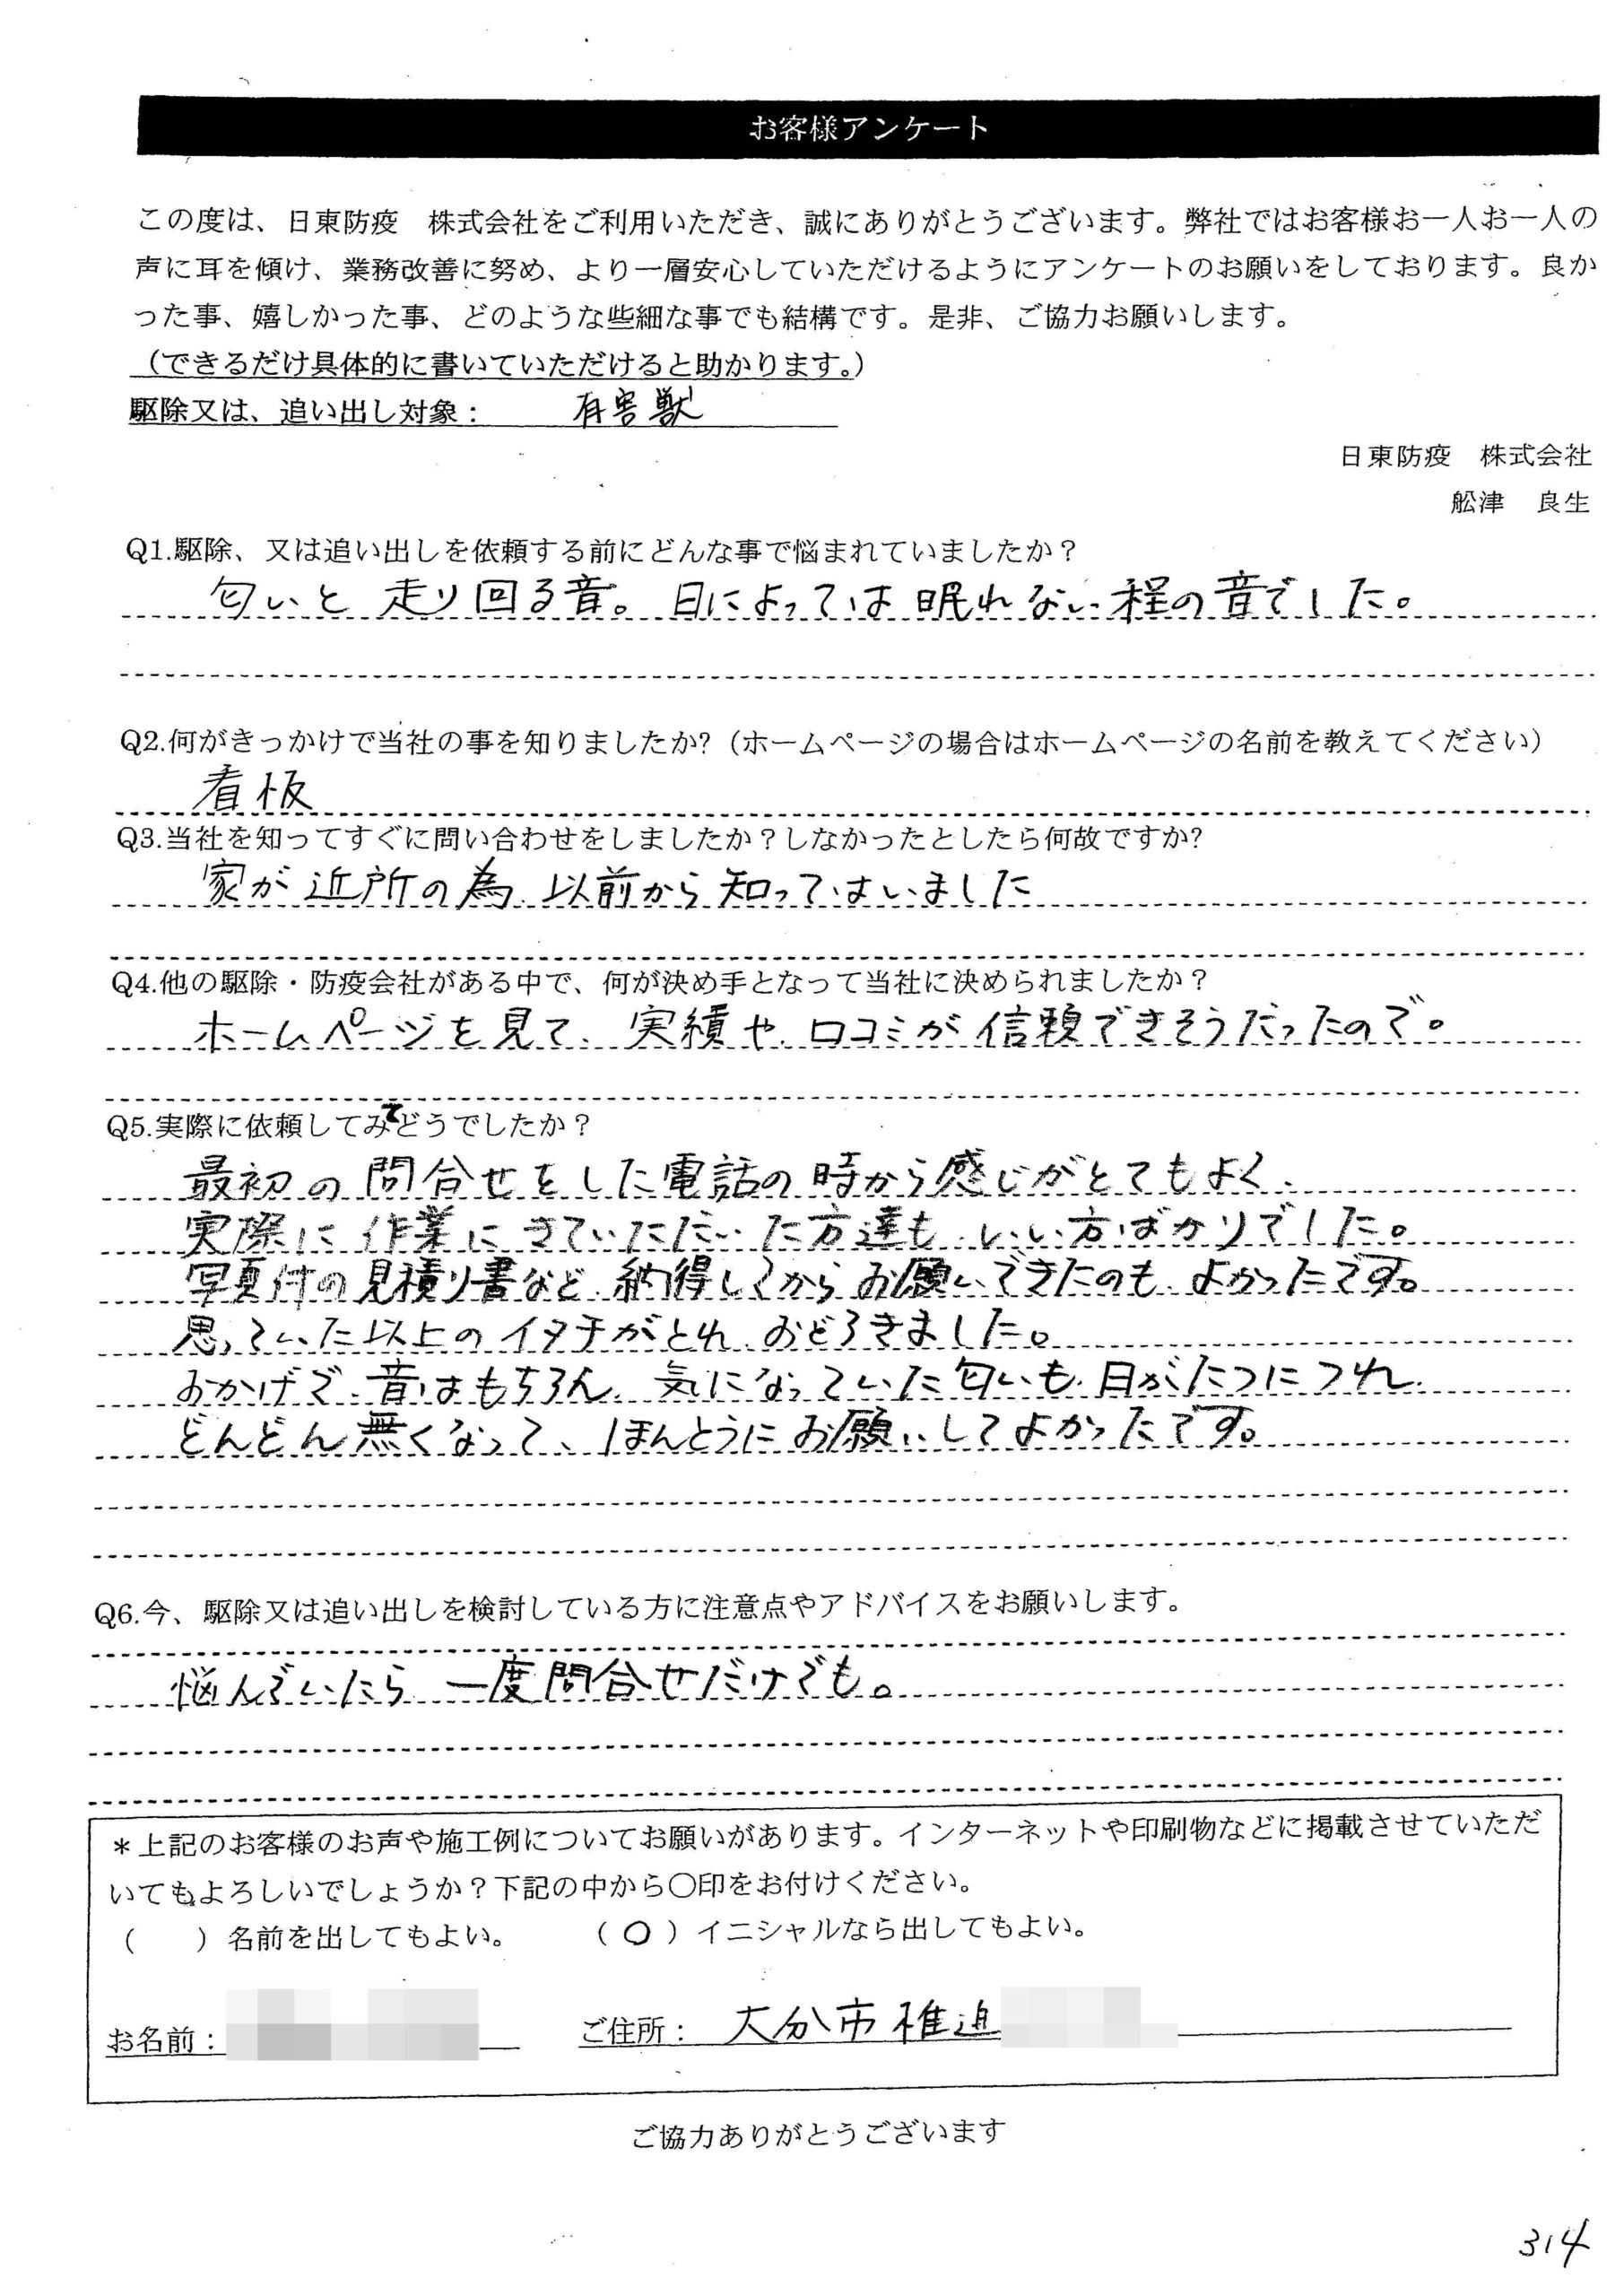 お客様アンケート
この度は、日東防疫　株式会社をご利用いただき、誠にありがとうございます。弊社ではお客様お一人お一人の
声に耳を傾け、業務改善に努め、より一層安心していただけるようにアンケートのお願いをしております。良か
った事、嬉しかった事、どのような些細な事でも結構です。是非、ご協力お願いします。
（できるだけ具体的に書いていただけると助かります。）
駆除又は、追い出し対象：　有害獣
日東防疫　株式会社
舩津　良生
Q1.駆除、又は追い出しを依頼する前にどんな事で悩まれていましたか？
匂いと走り回る音。日によっては眠れない程の音でした。
Q2.何がきっかけで当社の事を知りましたか?（ホームページの場合はホームページの名前を教えてください）
看板
Q3.当社を知ってすぐに問い合わせをしましたか？しなかったとしたら何故ですか?
家が近所の為、以前から知ってはいました
Q4.他の駆除・防疫会社がある中で、何が決め手となって当社に決められましたか？
ホームページを見て、実績や口コミが信頼できそうだったので。
Q5.実際に依頼してみてどうでしたか？
最初の問合せをした電話の時から感じがとてもよく、
実際に作業にきていただいた方達も、いい方ばかりでした。
写真付の見積り書など、納得してからお願いできたのも、よかったです。
思っていた以上のイタチがとれ、おどろきました。
おかげで、音はもちろん、気になっていた匂いも、日がたつにつれ、
どんどん無くなって、ほんとうにお願いしてよかったです。
Q6.今、駆除又は追い出しを検討している方に注意点やアドバイスをお願いします。
悩んでいたら一度問合せだけでも。
＊上記のお客様のお声や施工例についてお願いがあります。インターネットや印刷物などに掲載させていただ
いてもよろしいでしょうか？下記の中から〇印をお付けください。
（　　）名前を出してもよい。　　（〇）イニシャルなら出してもよい。
お名前：　ご住所：　大分市椎迫
ご協力ありがとうございます
314